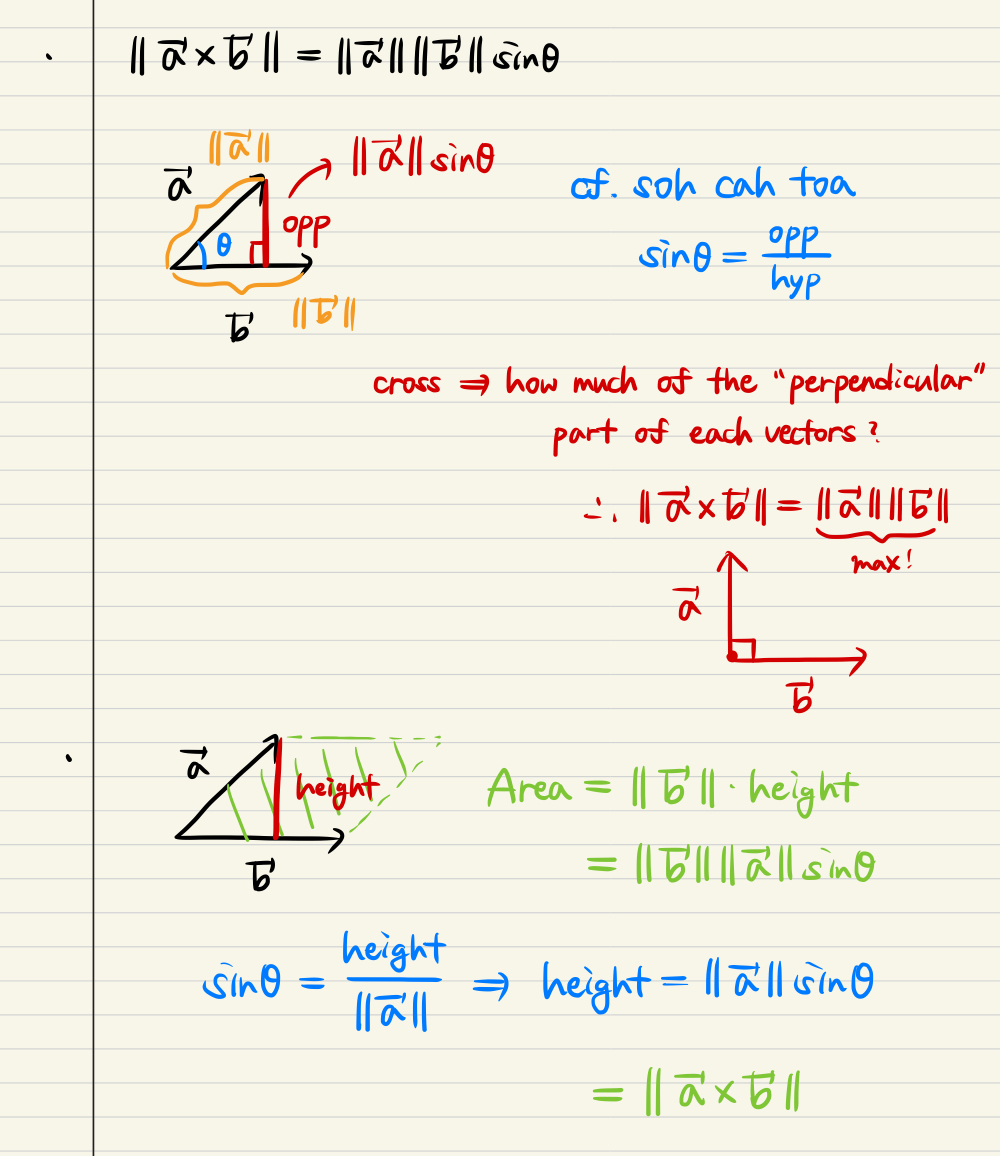 ‖a⃗ × b⃗‖ = ‖a⃗‖‖b⃗‖ sinθ
‖a⃗‖
a⃗
‖a⃗‖ sinθ
opp
θ
‖b⃗‖
b⃗
cf. soh cah toa
sinθ = opp/hyp
cross ⇒ how much of the "perpendicular"
part of each vectors?
∴ ‖a⃗ × b⃗‖ = ‖a⃗‖‖b⃗‖
max!
a⃗
b⃗
a⃗
height
b⃗
Area = ‖b⃗‖ · height
= ‖b⃗‖‖a⃗‖ sinθ
sinθ = height/‖a⃗‖ ⇒ height = ‖a⃗‖ sinθ
= ‖a⃗ × b⃗‖